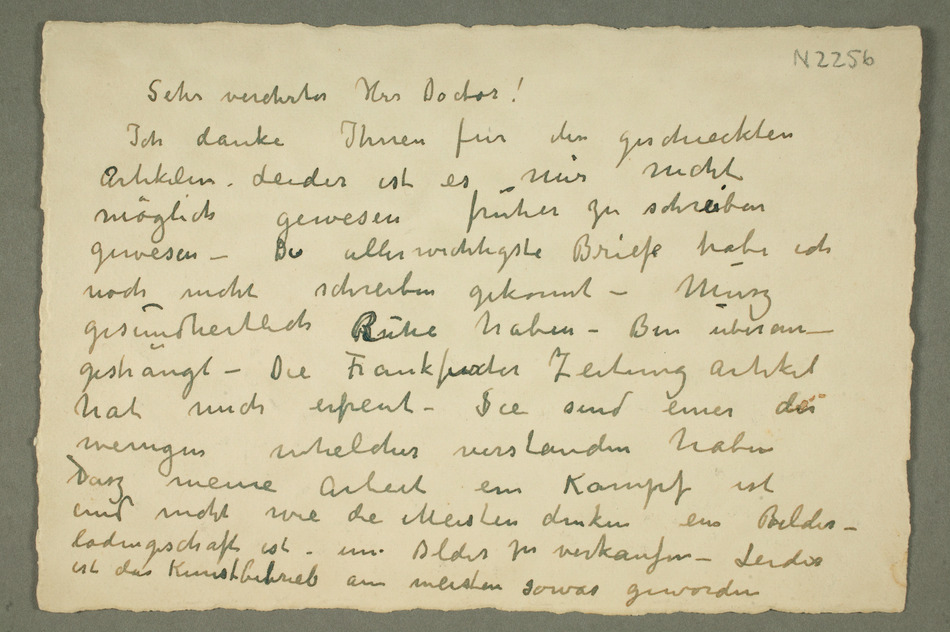 N2256
Sehr verehrter Herr Doctor!
Ich danke Ihnen für den geschickten
Artikelen. Leider ist es mir nicht
möglich gewesen früher zu schreiben
gewesen – Die allerwichtigste Briefe habe ich
noch nicht schreiben gekonnt – Musz
gesundheitlich Ruhe haben – Bin überan–
gesträngt – Die Frankfurter Zeitung artikel
hat mich erfreut – Sie sind einer der
wenigen welcher verstanden haben
Dasz meine Arbeit ein Kampf ist
und nicht wie die Meisten denken ein Bilder–
ladengeschäft ist – um Bilder zu verkaufen – Leider
ist das Kunstbetrieb am meisten sowas geworden